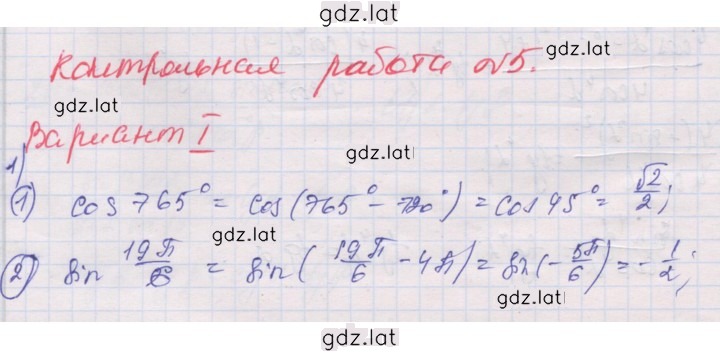 gdz.lat
gdz.lat
Контрольная работа №5.
gdz.lat
Вариант I
gdz.lat
1)
① cos 765° = cos(765° - 720°) = cos 45° = √2/2;
gdz.lat
② sin 19π/6 = sin(19π/6 - 4π) = sin(-5π/6) = -1/2;
gdz.lat
gdz.lat